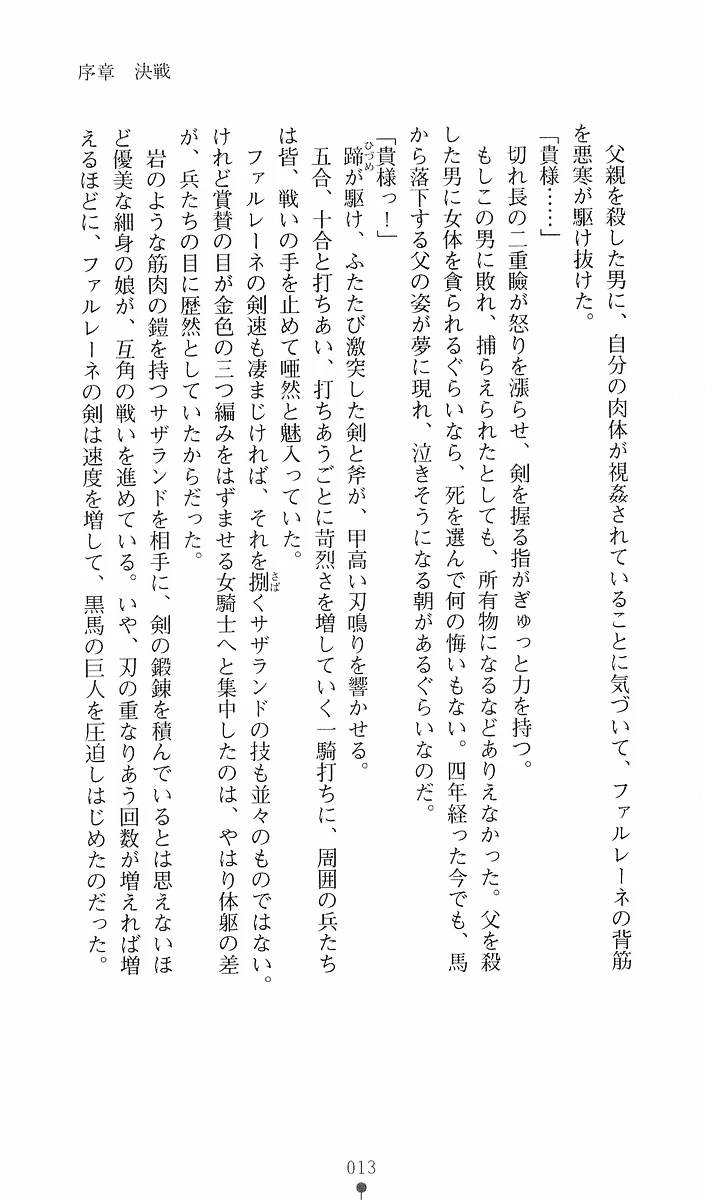 序章　決戦
　父親を殺した男に、自分の肉体が視姦されていることに気づいて、ファルレーネの背筋
を悪寒が駆け抜けた。
「貴様……」
　切れ長の二重瞼が怒りを漲らせ、剣を握る指がぎゅっと力を持つ。
　もしこの男に敗れ、捕らえられたとしても、所有物になるなどありえなかった。父を殺
した男に女体を貪られるぐらいなら、死を選んで何の悔いもない。四年経った今でも、馬
から落下する父の姿が夢に現れ、泣きそうになる朝があるぐらいなのだ。
「貴様っ！」
　蹄が駆け、ふたたび激突した剣と斧が、甲高い刃鳴りを響かせる。
　五合、十合と打ちあい、打ちあうごとに苛烈さを増していく一騎打ちに、周囲の兵たち
は皆、戦いの手を止めて唖然と魅入っていた。
　ファルレーネの剣速も凄まじければ、それを捌くサザランドの技も並々のものではない。
けれど賞賛の目が金色の三つ編みをはずませる女騎士へと集中したのは、やはり体躯の差
が、兵たちの目に歴然としていたからだった。
　岩のような筋肉の鎧を持つサザランドを相手に、剣の鍛錬を積んでいるとは思えないほ
ど優美な細身の娘が、互角の戦いを進めている。いや、刃の重なりあう回数が増えれば増
えるほどに、ファルレーネの剣は速度を増して、黒馬の巨人を圧迫しはじめたのだった。
013